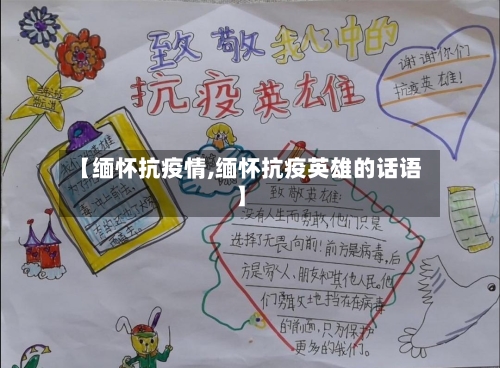 致敬我心中的
抗疫英雄
谢谢你们
抗疫英雄!
【缅怀抗疫情,缅怀抗疫英雄的话语
】
致敬英雄:
没有人生而勇敢,他们只是
选择了无畏向前!前方是病毒,后
方是家人、朋友和其他人民。他
们勇敢地挡在在病毒
的前面,只为保护
更多的我们。